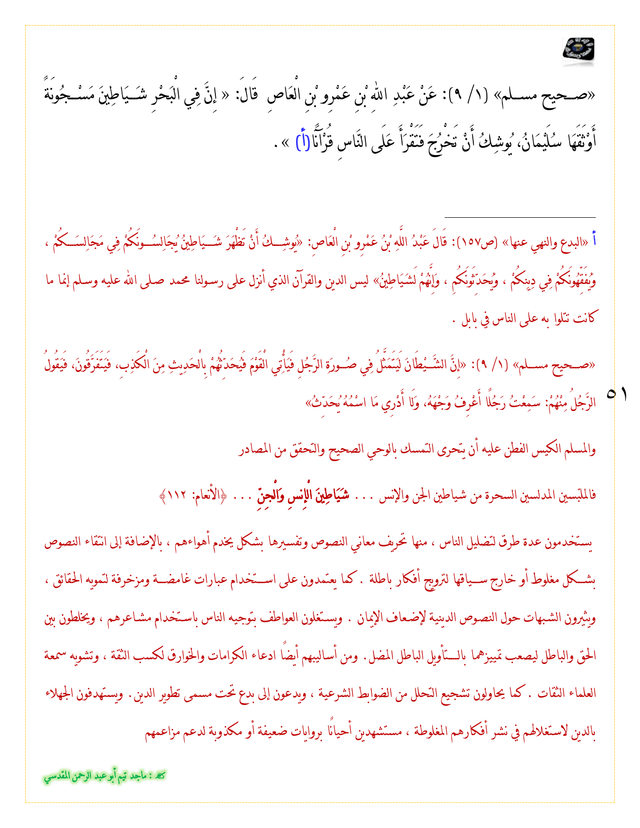 «صـحيح مسـلم» (١/ ٩): عَنْ عَبْدِ اللهِ بْنِ عَمْرِو بْنِ الْعَاصِ قَالَ: « إِنَّ فِي الْبَحْرِ شَـيَاطِينَ مَسْـجُونَةً
أَوْثَقَهَا سُلَيْمَانُ، يُوشِكُ أَنْ تَخْرُجَ فَتَقْرَأَ عَلَى النَّاسِ قُرْآنًا(أ) » .
أ «البدع والنهي عنها» (ص١٥٧): قَالَ عَبْدُ اللَّهِ بْنُ عَمْرِو بْنِ الْعَاصِ: «يُوشِـكُ أَنْ تَظْهَرَ شَـيَاطِينُ يُجَالِسُـونَكُمْ فِي مَجَالِسِـكُمْ ،
وَيُفَقِّهُونَكُمْ فِي دِينِكُمْ ، وَيُحَدِّثُونَكُمْ ، وَإِنَّهُمْ لَشَيَاطِينُ» ليس الدين والقرآن الذي أنزل على رسولنا محمد صلى الله عليه وسلم إنما ما
كانت تتلوا به على الناس في بابل .
«صـحيح مسـلم» (١/ ٩): «إِنَّ الشَّـيْطَانَ لَيَتَمَثَّلُ فِي صُـورَةِ الرَّجُلِ فَيَأْتِي الْقَوْمَ فَيُحَدِّثُهُمْ بِالْحَدِيثِ مِنَ الْكَذِبِ، فَيَتَفَرَّقُونَ، فَيَقُولُ
الرَّجُلُ مِنْهُمْ: سَمِعْتُ رَجُلًا أَعْرِفُ وَجْهَهُ، وَلَا أَدْرِي مَا اسْمُهُ يُحَدِّثُ»
٥١
والمسلم الكيس الفطن عليه أن يتحرى التمسك بالوحي الصحيح والتحقق من المصادر
فالملبّسين المدلسين السحرة من شياطين الجن والإنس ... شَيَاطِينَ الْإِنسِ وَالْجِنِّ ... ﴿الأنعام: ١١٢﴾
يستخدمون عدة طرق لتضليل الناس ، منها تحريف معاني النصوص وتفسيرها بشكل يخدم أهواءهم ، بالإضافة إلى انتقاء النصوص
بشـكل مغلوط أو خارج سـياقها لترويج أفكار باطلة . كما يعتمدون على اسـتخدام عبارات غامضـة ومزخرفة لتمويه الحقائق ،
ويثيرون الشبهات حول النصوص الدينية لإضعاف الإيمان . ويستغلون العواطف بتوجيه الناس باستخدام مشاعرهم ، ويخلطون بين
الحق والباطل ليصعب تمييزهما بالـتأويل الباطل المضل. ومن أساليبهم أيضًا ادعاء الكرامات والخوارق لكسب الثقة ، وتشويه سمعة
العلماء الثقات . كما يحاولون تشجيع التحلل من الضوابط الشرعية ، ويدعون إلى بدع تحت مسمى تطوير الدين. ويستهدفون الجهلاء
بالدين لاستغلالهم في نشر أفكارهم المغلوطة ، مستشهدين أحيانًا بروايات ضعيفة أو مكذوبة لدعم مزاعمهم
كتبه : ماجد تيم أبو عبد الرحمن المقدسي